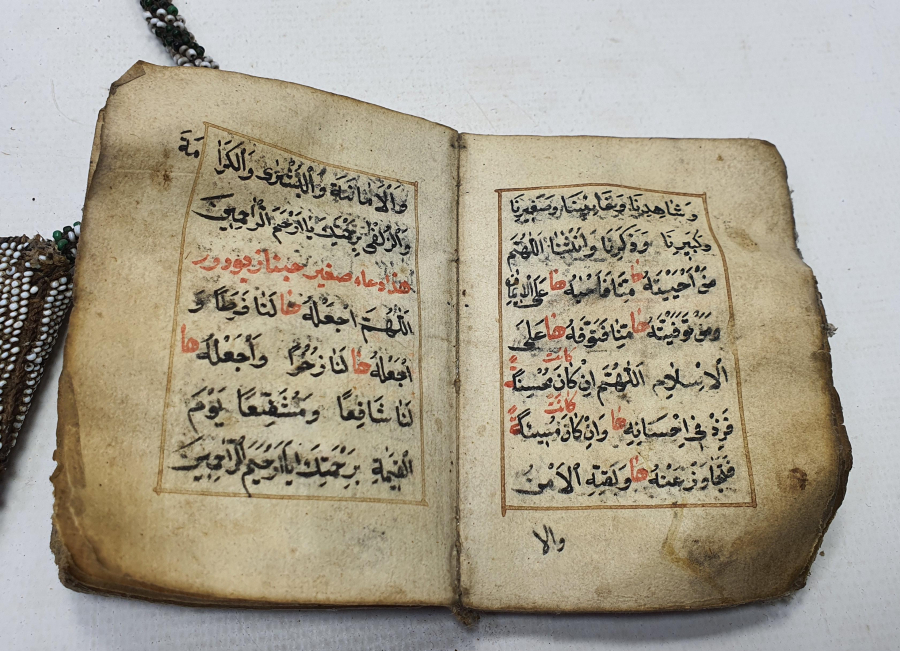 وشاهدنا وغايبنا وصغيرنا
وكبيرنا وذكرنا وانثنا اللهم
من احييته ها منا فاحيه ها على الايمان
ومن توفيته ها منا فتوفه ها على
الاسلام اللهم ان كان كانت محسنا ةً
فزد في احسانه ها وان كان كانت مسيئا ةً
فتجاوز عنه ها ولقه الامن
والا
والامانة والبشرى والكرامة
والزلفى برحمتك يا ارحم الراحمين
هذا دعاء صغير جنازه يودور
اللهم اجعله ها لنا فرطا و
اجعله ها لنا ذخرا واجعله ها
لنا شافعا ومشفعا يوم
القيمة برحمتك يا ارحم الراحمين